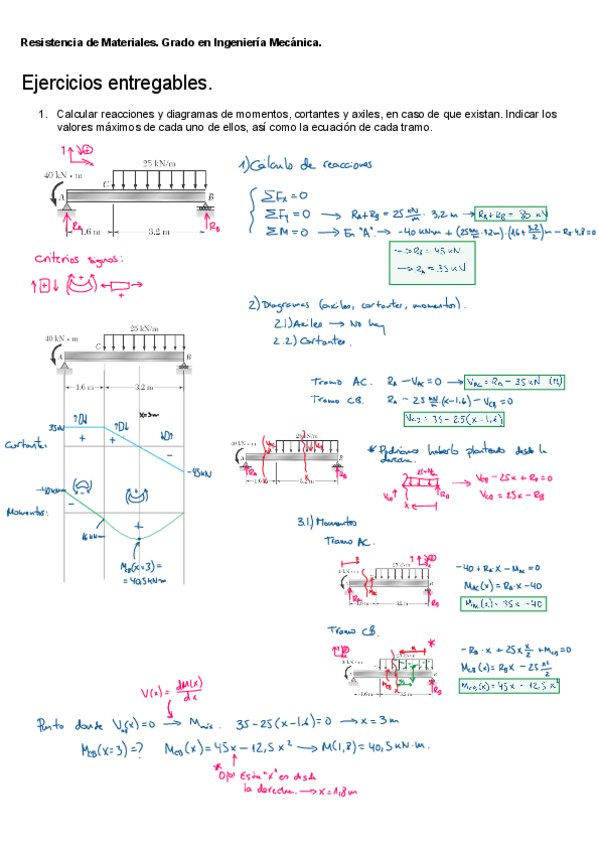 Resistencia de Materiales. Grado en Ingeniería Mecánica.
Ejercicios entregables.
1. Calcular reacciones y diagramas de momentos, cortantes y axiles, en caso de que existan. Indicar los
valores máximos de cada uno de ellos, así como la ecuación de cada tramo.
25 kN/m
40 kN • m
C
A
B
RA
RB
1.6 m
3.2 m
1) Cálculo de reacciones
ΣFx = 0
ΣFy = 0 → RA + RB = 25 kN/m · 3,2 m → RA + RB = 80 kN
ΣM = 0 → En "A" → -40 kNm + (25 kN/m · 3,2m) · (1,6 + 3,2/2) m - RB · 4,8 = 0
→ RB = 45 kN
→ RA = 35 kN
Criterios signos:
2) Diagramas (axiles, cortantes, momentos).
2.1) Axiles → No hay
2.2) Cortantes.
25 kN/m
40 kN • m
C
A
B
1.6 m
3.2 m
Tramo AC. RA - VAC = 0 → VAC = RA = 35 kN
Tramo CB. RA - 25 kN/m · (x-1,6) - VCB = 0
VCB = 35 - 25(x-1,6)
x=3m
35kN
Cortante:
-45kN
* Podríamos haberlo planteado desde la
derecha.
VCB - 25x + RB = 0
VCB = 25x - RB
-40kNm
Momentos:
16 kNm
MB(x=3) =
= 40,5 kNm
3.1) Momentos
Tramo AC.
-40 + RA·x - MAC = 0
MAC(x) = RA·x - 40
MAC(x) = 35x - 40
Tramo CB.
-RB·x + 25x x/2 + MCB = 0
MCB(x) = RBx - 25 x²/2
MCB(x) = 45x - 12,5x²
V(x) = dM(x)/dx
Punto donde V(x) = 0 → Mmáx. 35 - 25(x-1,6) = 0 → x = 3m
MCB(x=3) = ? MCB(x) = 45x - 12,5x² → M(1,8) = 40,5 kN·m.
* Ojo! Esta "x" es desde
la derecha. → x = 1,8m